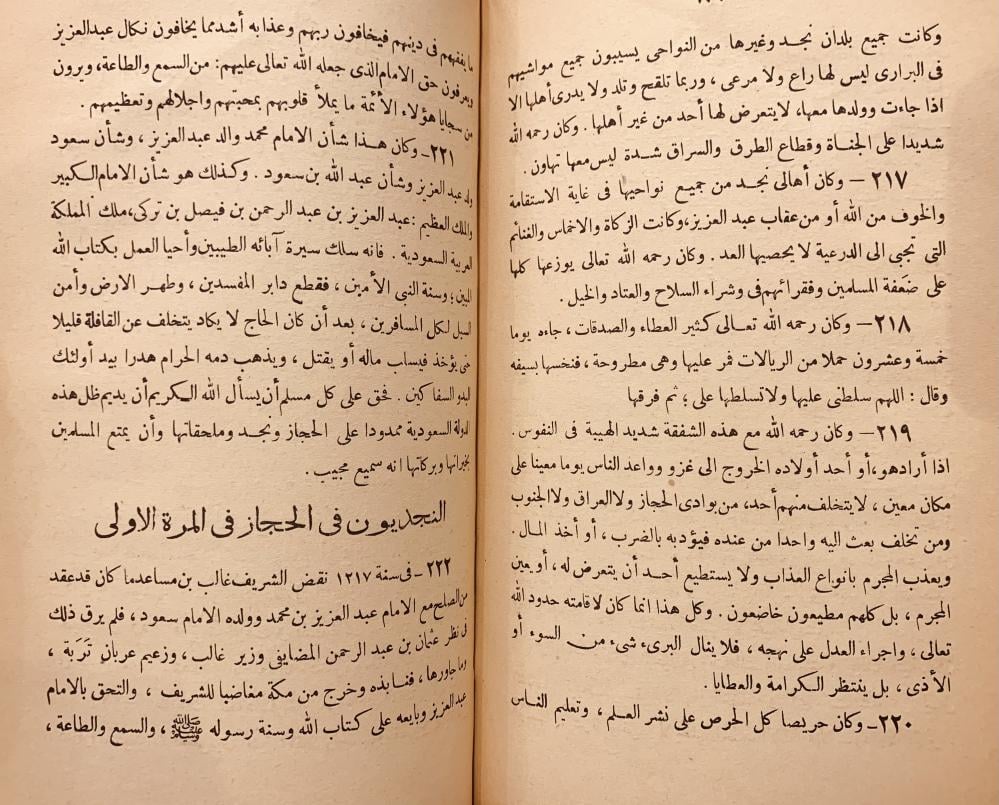 وكانت جميع بلدان نجد وغيرها من النواحى يسيبون جميع مواشيهم
فى البرارى ليس لها راع ولا مرعى ، وربما تلقح وتلد ولا يدرى أهلها الا
اذا جاءت وولدها معها، لا يتعرض لها أحد من غير أهلها . وكان رحمه الله
شديدا على الجناة وقطاع الطرق والسراق شدة ليس معها تهاون .
٢١٧ – وكان أهالى نجد من جميع نواحيها فى غاية الاستقامة
والخوف من الله أو من عقاب عبد العزيز، وكانت الزكاة والاخماس والغنائم
التى تجبى الى الدرعية لا يحصيها العد . وكان رحمه الله تعالى يوزعها كلها
على ضَعَفة المسلمين وفقرائهم وفى شراء السلاح والعتاد والخيل .
٢١٨ – وكان رحمه الله تعالى كثير العطاء والصدقات ، جاءه يوما
خمسة وعشرون حملا من الريالات فمر عليها وهى مطروحة ، فنخسها بسيفه
وقال : اللهم سلطنى عليها ولا تسلطها على ؛ ثم فرقها
٢١٩ – وكان رحمه الله مع هذه الشفقة شديد الهيبة فى النفوس .
اذا أراد هو، أو أحد أولاده الخروج الى غزو وواعد الناس يوما معينا على
مكان معين ، لا يتخلف منهم أحد، من بوادى الحجاز ولا العراق ولا الجنوب
ومن تخلف بعث اليه واحدا من عنده فيؤدبه بالضرب ، أو أخذ المال .
ويعذب المجرم بانواع العذاب ولا يستطيع أحد أن يتعرض له ، أو يعين
المجرم ، بل كلهم مطيعون خاضعون . وكل هذا انما كان لاقامته حدود الله
تعالى ، واجراء العدل على نهجه ، فلا ينال البرىء شىء من السوء أو
الأذى ، بل ينتظر الكرامة والعطايا .
٢٢٠ – وكان حريصا كل الحرص على نشر العلم ، وتعليم الناس
ما يفقههم فى دينهم فيخافون ربهم وعذابه أشد مما يخافون نكال عبد العزيز
ويعرفون حق الامام الذى جعله الله تعالى عليهم : من السمع والطاعة، ويرون
من سجايا هؤلاء الأئمة ما يملأ قلوبهم بمحبتهم واجلالهم وتعظيمهم .
٢٢١ – وكان هذا شأن الامام محمد والد عبد العزيز ، وشأن سعود
ولد عبد العزيز وشأن عبد الله بن سعود . وكذلك هو شأن الامام الكبير
والملك العظيم : عبد العزيز بن عبد الرحمن بن فيصل بن تركى، ملك المملكة
العربية السعودية . فانه سلك سيرة آبائه الطيبين وأحيا العمل بكتاب الله
المبين ؛ وسنة النبى الأمين ، فقطع دابر المفسدين ، وطهر الارض وأمن
السبل لكل المسافرين ، بعد أن كان الحاج لا يكاد يتخلف عن القافلة قليلا
حتى يؤخذ فيساب ماله أو يقتل ، ويذهب دمه الحرام هدرا بيد أولئك
البدو السفاكين . فحق على كل مسلم أن يسأل الله الكريم أن يديم ظل هذه
الدولة السعودية ممدودا على الحجاز ونجد وملحقاتها وأن يمتع المسلمين
بخيراتها وبركاتها انه سميع مجيب .
النجديون فى الحجاز فى المرة الاولى
٢٢٢ – فى سنة ١٢١٧ نقض الشريف غالب بن مساعد ما كان قد عقد
من الصلح مع الامام عبد العزيز بن محمد وولده الامام سعود ، فلم يرق ذلك
فى نظر عثمان بن عبد الرحمن المضايفى وزير غالب ، وزعيم عربان تَرَبة ،
وما جاورها ، فنابذه وخرج من مكة مغاضبا للشريف ، والتحق بالامام
عبد العزيز وبايعه على كتاب الله وسنة رسوله ﷺ ، والسمع والطاعة ،